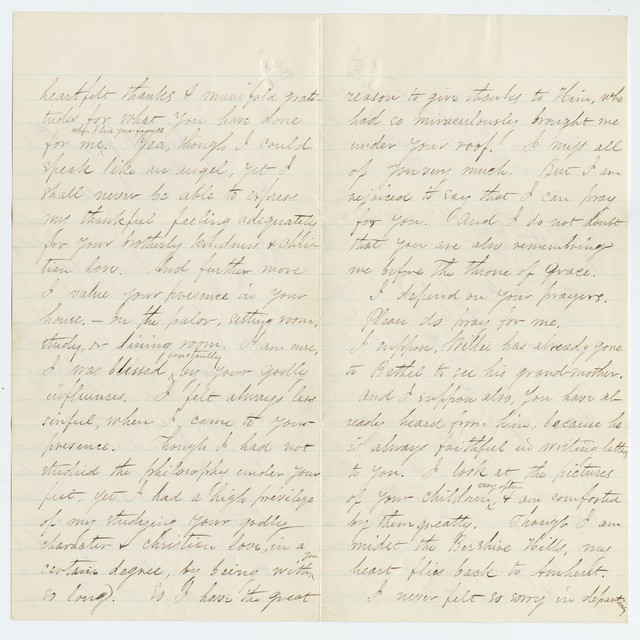 heartfelt thanks & manifold grati-
tudes for what you have done
for me when I was your inmate. Yea, though I could
speak like an angel, yet I
shall never be able to express
my thankful feeling adequately
for your brotherly kindness & chris-
tian love. And further more
I value your presence in your
house, — in the palor, sitting room,
study, & dining room. I am sure,
I was blessed constantly by your godly
influences. I felt always less
sinful, when I came to your
presence. Though I had not
studied the philosophy under your
feet, yet I had a high previlege
of my studying your godly
character & christian love, in a
certain degree, by being with you
so long). So I have the great
reason to give thanks to Him, who
had so miraculously brought me
under your roof. I miss all
of you very much. But I am
rejoiced to say that I can pray
for you. And I do not doubt
that you are also remembering
me before the throne of Grace.
I depend on your prayers.
Please do pray for me.
I suppose, Willie has already gone
to Bethel to see his grand-mother.
And I suppose also, you have al-
ready heard from him, because he
is always faithful in writing letters
to you. I look at the pictures
of your children very often & am comforted
by them greatly. Though I am
midst the Berkshire Hills, my
heart flies back to Amherst.
I never felt so sorry in departing